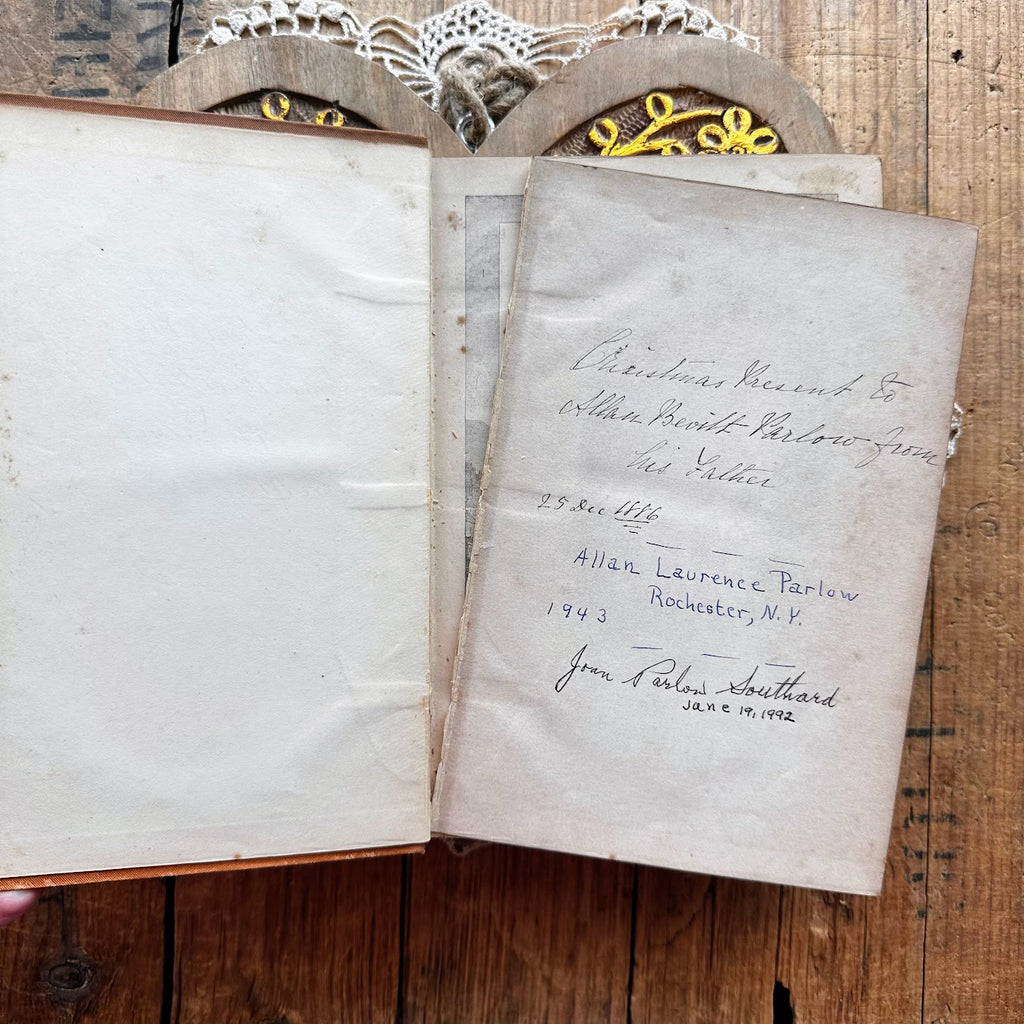 Christmas Present to
Allan Bevitt Parlow from
his Father
25 Dec 1886
Allan Laurence Parlow
Rochester, N.Y.
1943
Joan Parlow Southard
June 19, 1992